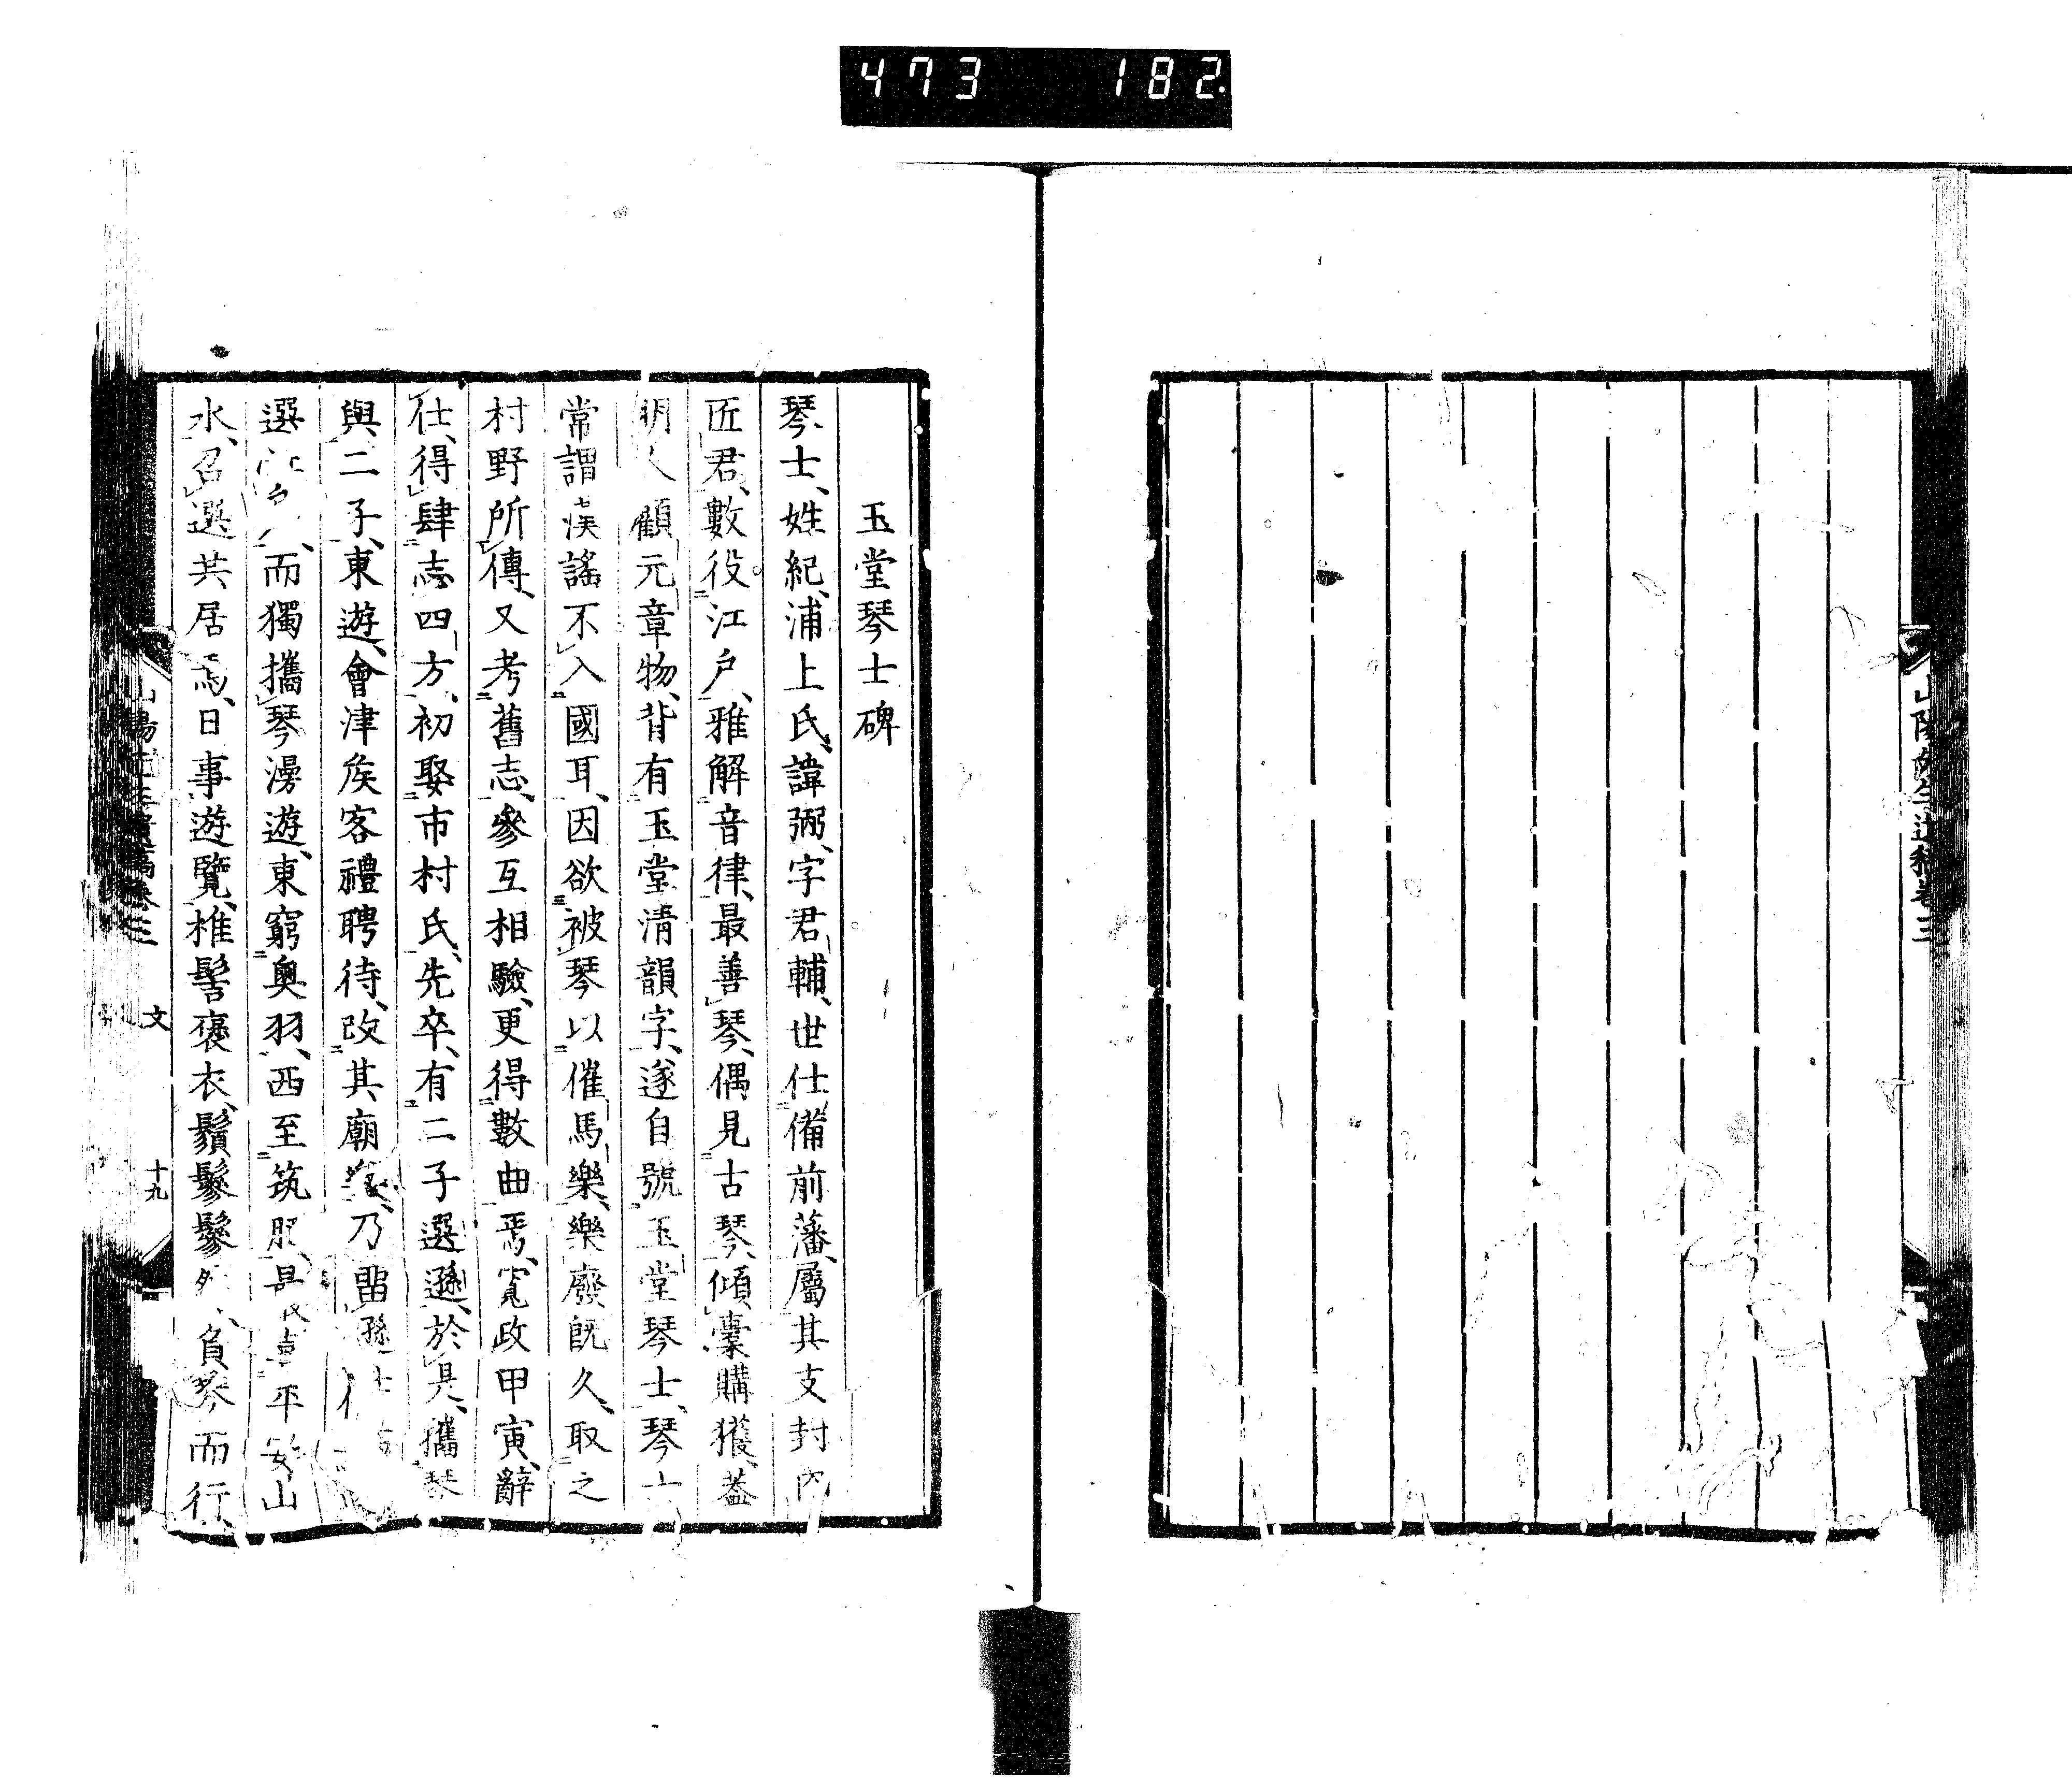 473 182.
山陽先生遺稿卷三
玉堂琴士碑
琴士、姓紀、浦上氏、諱弼、字君輔、世仕備前藩、屬其支封內
匠君、數役江戶、雅解音律、最善琴、偶見古琴、傾囊購獲、蓋
明人顧元章物、背有玉堂清韻字、遂自號玉堂琴士、琴士
常謂 謠不入國耳、因欲被琴以催馬樂、樂廢既久、取之
村野所傳、又考舊志、參互相驗、更得數曲焉、寬政甲寅、辭
仕、得肆志四方、初娶市村氏、先卒、有二子選遜、於是、攜琴
與二子、東遊、會津侯客禮聘待、改其廟 、乃留遜
選 而獨攜琴漫遊、東窮奧羽、西至筑肥、 喜平安山
水、召選共居焉、日事遊覽、椎髻褒衣、鬚鬖鬖 、負琴而行、
山陽先生遺稿卷三 文 十九